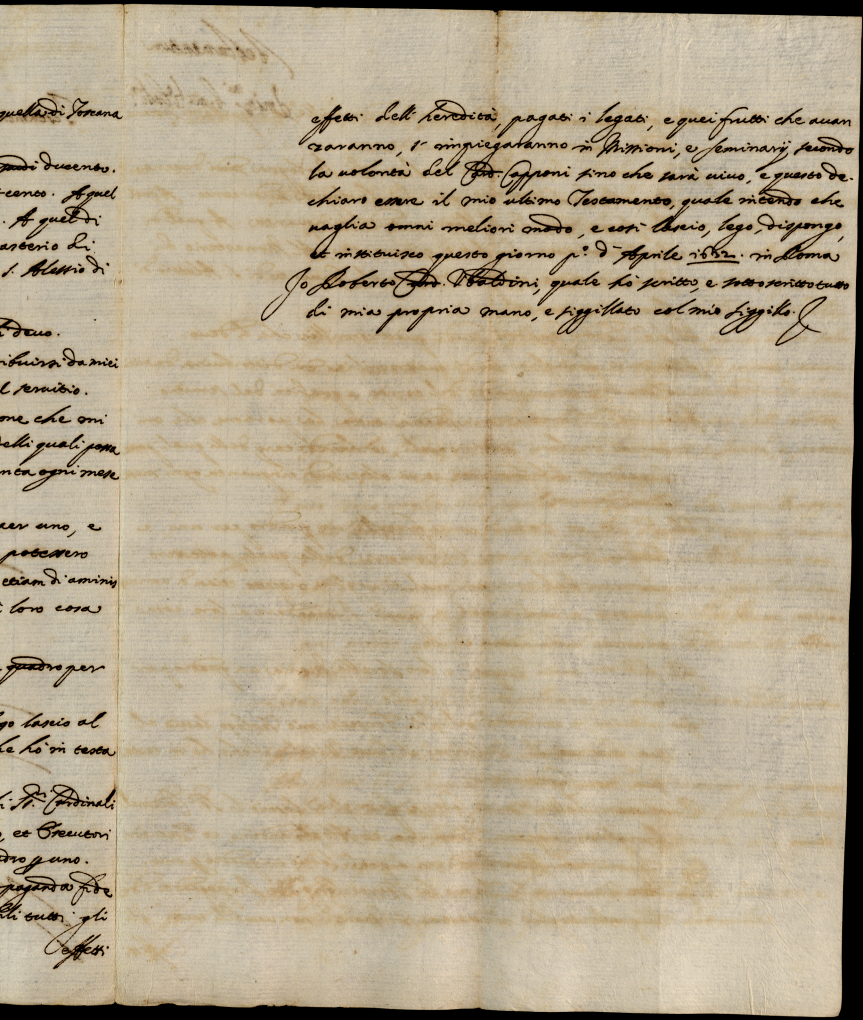 quella di Toscana
ducento.
cento. A quel
. A quel di
asterio di
S. Alessio di
devo.
ribuirsi da miei
l servitio.
one che mi
delli quali possa
nta ogni mese
per uno, e
potessero
etiam di aminis
loro cosa
quadro per
go lascio al
he hò in testa
li SS.ri Cardinali
, et Essecutori
dro p uno.
paganda fide
li tutti gli
effetti
effetti dell' heredità, pagati i legati, e quei frutti che auan
zaranno, s' impiegaranno in Missioni, e seminarij secondo
la volontà del Card. Capponi sino che sarà uiuo, e questo de-
chiaro essere il mio ultimo Testamento, quale intendo che
uaglia omni meliori modo, e così lascio, lego, dispongo,
et instituisco questo giorno p.o d' Aprile 1632. in Roma
Io Roberto Card. Vbaldini, quale hò scritto, e sottoscritto tutto
di mia propria mano, e siggillato col mio siggillo.